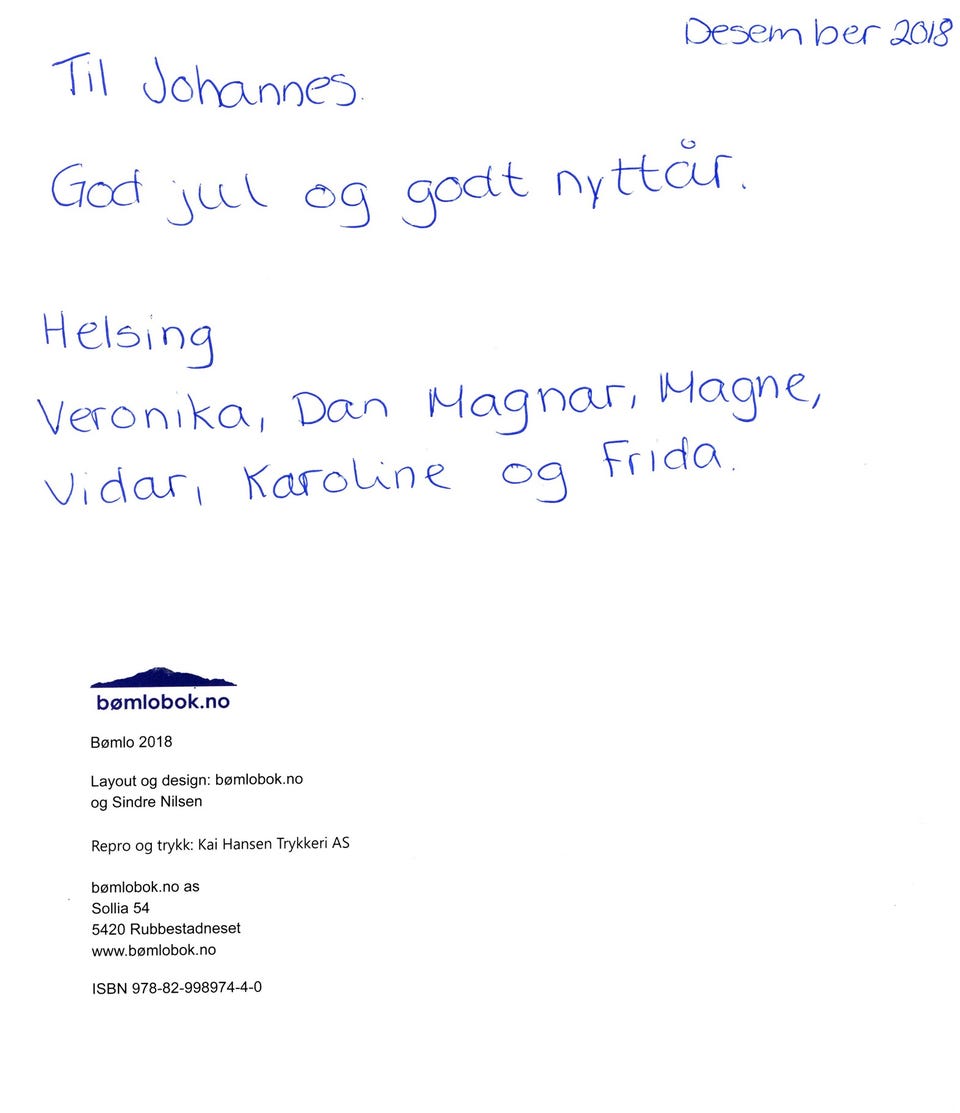 Desember 2018
Til Johannes.
God jul og godt nyttår.
Helsing
Veronika, Dan Magnar, Magne,
Vidar, Karoline og Frida.
bømlobok.no
Bømlo 2018
Layout og design: bømlobok.no
og Sindre Nilsen
Repro og trykk: Kai Hansen Trykkeri AS
bømlobok.no as
Sollia 54
5420 Rubbestadneset
www.bømlobok.no
ISBN 978-82-998974-4-0